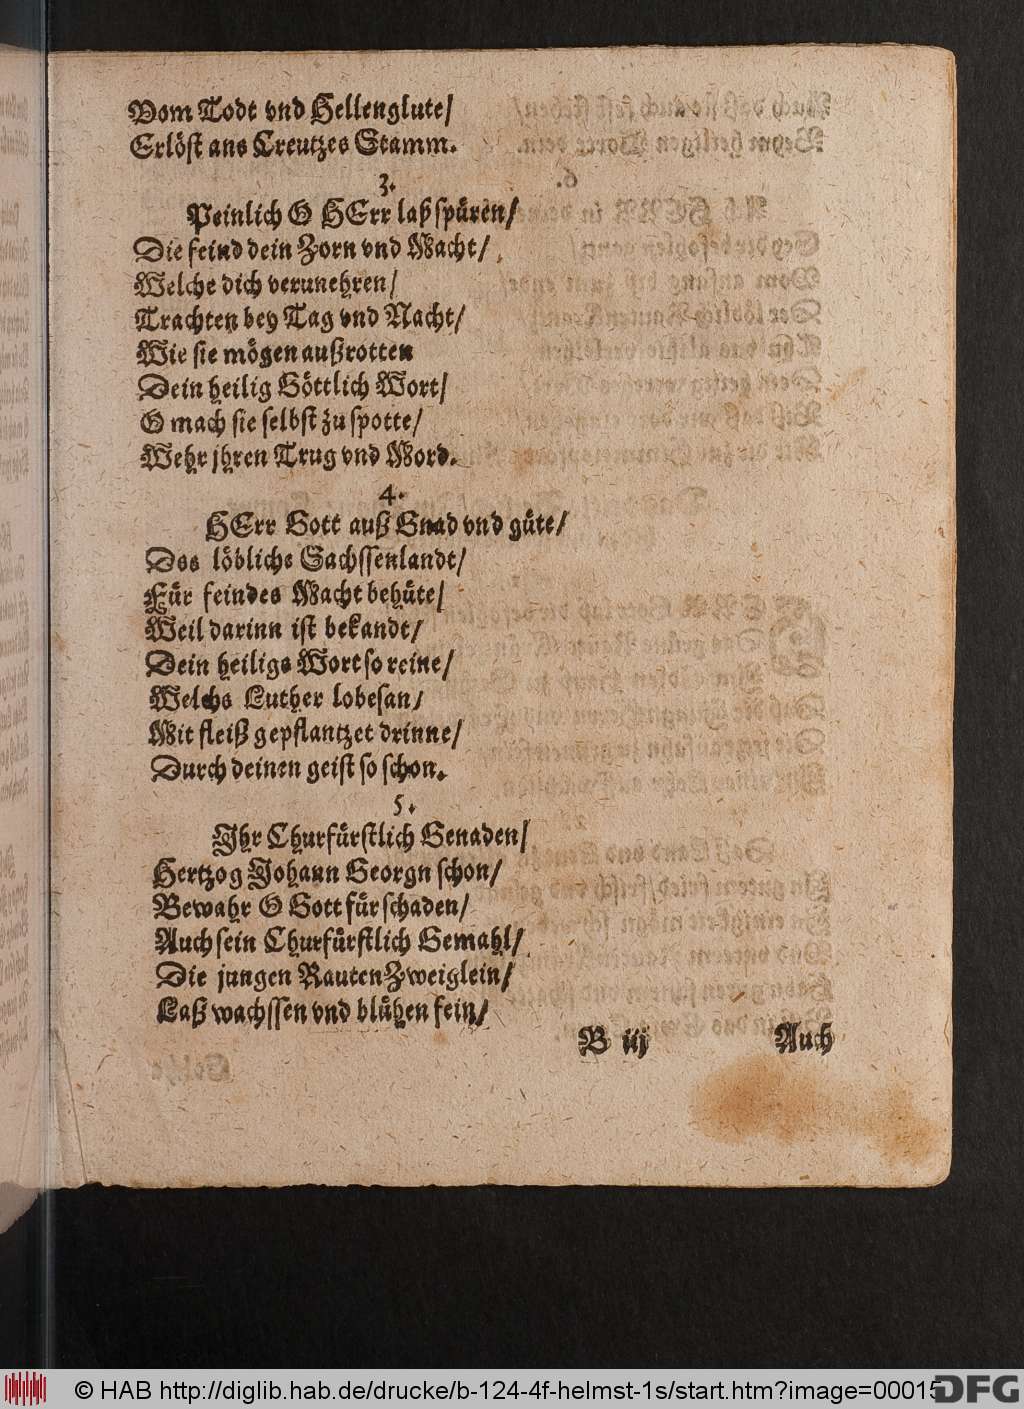 Vom Todt vnd Hellenglute/
Erlöst ans Creutzes Stamm.
3.
Peinlich O HErr laß spüren/
Die feind dein Zorn vnd Macht/
Welche dich verunehren/
Trachten bey Tag vnd Nacht/
Wie sie mögen außrotten
Dein heilig Göttlich Wort/
O mach sie selbst zu spotte/
Wehr jhren Trug vnd Mord.
4.
HErr Gott auß Gnad vnd güte/
Das löbliche Sachssenlandt/
Für feindes Macht behüte/
Weil darinn ist bekandt/
Dein heiligs Wort so reine/
Welchs Luther lobesan/
Mit fleiß gepflantzet drinne/
Durch deinen geist so schon.
5.
Ihr Churfürstlich Genaden/
Hertzog Johann Georgn schon/
Bewahr O Gott für schaden/
Auch sein Churfürstlich Gemahl/
Die jungen Rauten Zweiglein/
Laß wachssen vnd blühen fein/
B iij Auch
© HAB http://diglib.hab.de/drucke/b-124-4f-helmst-1s/start.htm?image=00015
DFG